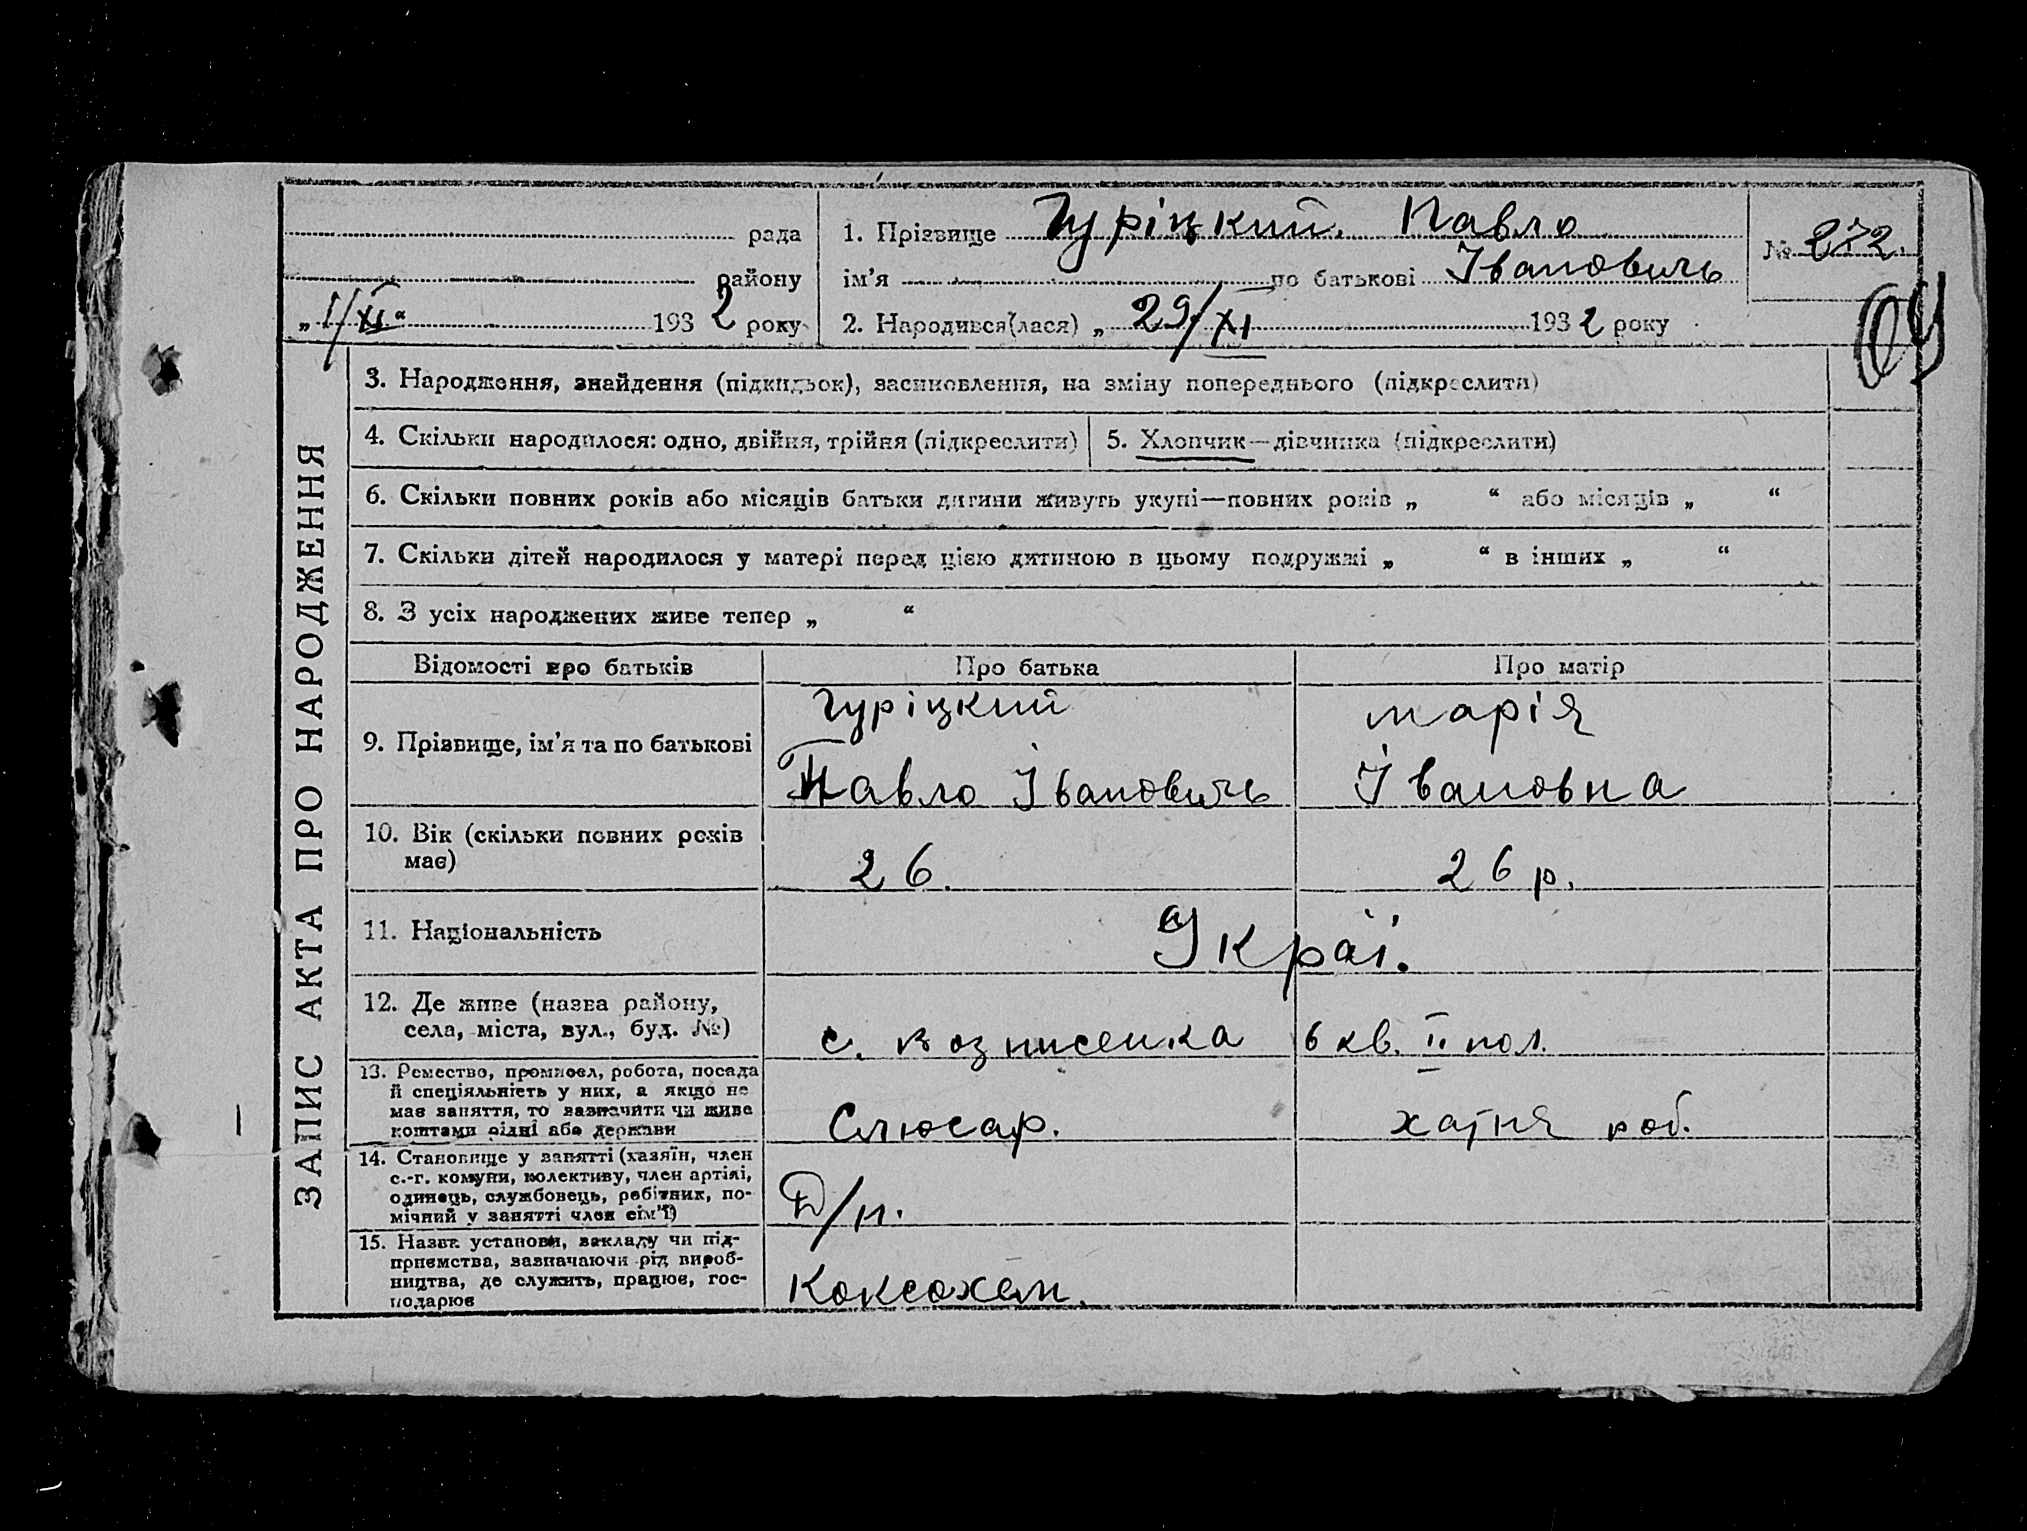 рада
району
„ 1/XI “ 1932 року
1. Прізвище Гуріцкий. Павло
ім’я по батькові Івановичь
2. Народився(лася) „ 29/XI 1932 року
№ 272.
ЗАПИС АКТА ПРО НАРОДЖЕННЯ
3. Народження, знайдення (підкидьок), засиновлення, на зміну попереднього (підкреслити)
4. Скільки народилося: одно, двійня, трійня (підкреслити)
5. Хлопчик—дівчинка (підкреслити)
6. Скільки повних років або місяців батьки дитини живуть укупі—повних років „ “ або місяців „ “
7. Скільки дітей народилося у матері перед цією дитиною в цьому подружжі „ “ в інших „ “
8. З усіх народжених живе тепер „ “
Відомості про батьків
Про батька
Про матір
9. Прізвище, ім’я та по батькові
Гуріцкий
Павло Івановичь
марія
Івановна
10. Вік (скільки повних років
має)
26.
26 р.
11. Національність
Украї.
12. Де живе (назва району,
села, міста, вул., буд. №)
с. Вознисенка 6 кв. II пол.
13. Ремество, промисел, робота, посада
й спеціяльність у них, а якщо не
має заняття, то зазначити чи живе
коштами рідні або держави
Слюсар.
хатня роб.
14. Становище у занятті (хазяїн, член
с.-г. комуни, колективу, член артілі,
одинець, службовець, робітник, по-
мічний у занятті член сім’ї)
Д/н.
15. Назва установи, закладу чи під-
приємства, зазначаючи рід вироб-
ництва, де служить, працює, гос-
подарює
Коксохем.